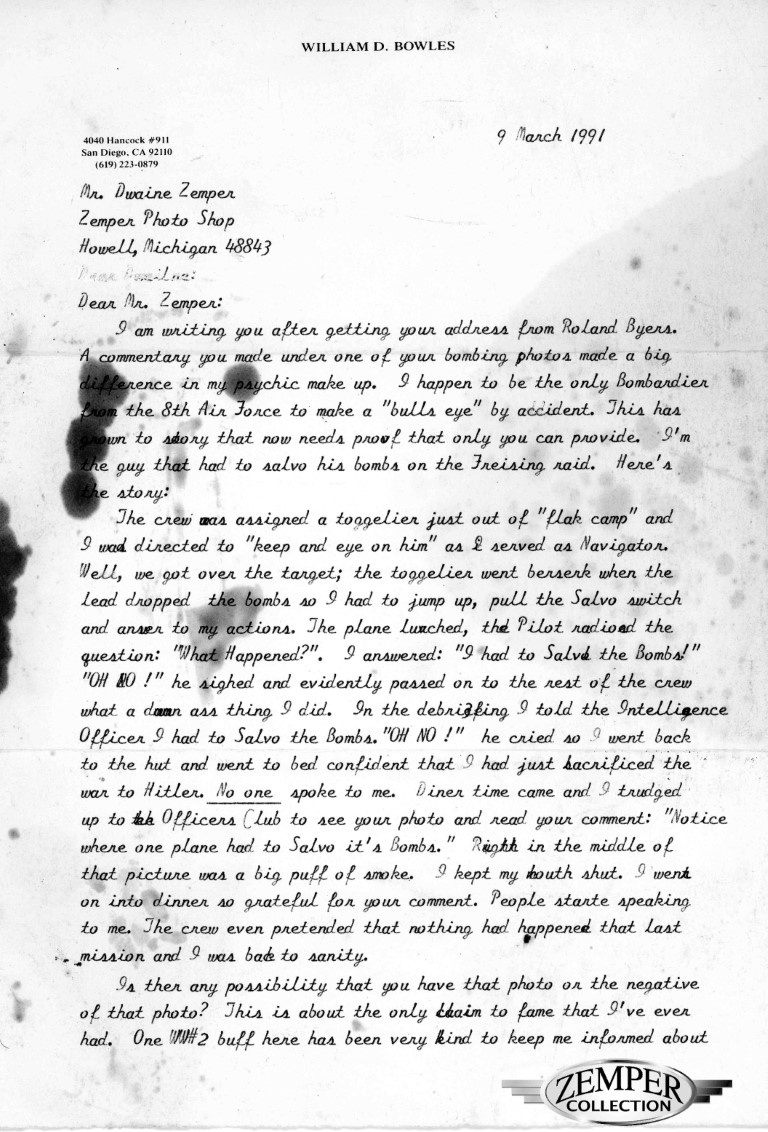 WILLIAM D. BOWLES
9 March 1991
4040 Hancock #911
San Diego, CA 92110
(619) 223-0879
Mr. Dwaine Zemper
Zemper Photo Shop
Howell, Michigan 48843
Dear Mr. Zemper:
I am writing you after getting your address from Roland Byers.
A commentary you made under one of your bombing photos made a big
difference in my psychic make up. I happen to be the only Bombardier
from the 8th Air Force to make a "bulls eye" by accident. This has
grown to story that now needs proof that only you can provide. I'm
the guy that had to salvo his bombs on the Freising raid. Here's
the story:
The crew was assigned a toggelier just out of "flak camp" and
I was directed to "keep and eye on him" as I served as Navigator.
Well, we got over the target; the toggelier went berserk when the
lead dropped the bombs so I had to jump up, pull the Salvo switch
and anser to my actions. The plane lurched, the Pilot radioed the
question: "What Happened?". I answered: "I had to Salvo the Bombs!"
"OH NO !" he sighed and evidently passed on to the rest of the crew
what a damn ass thing I did. In the debriefing I told the Intelligence
Officer I had to Salvo the Bombs. "OH NO !" he cried so I went back
to the hut and went to bed confident that I had just sacrificed the
war to Hitler. No one spoke to me. Diner time came and I trudged
up to the Officers Club to see your photo and read your comment: "Notice
where one plane had to Salvo it's Bombs." Right in the middle of
that picture was a big puff of smoke. I kept my mouth shut. I went
on into dinner so grateful for your comment. People starte speaking
to me. The crew even pretended that nothing had happened that last
mission and I was back to sanity.
Is ther any possibility that you have that photo or the negative
of that photo? This is about the only claim to fame that I've ever
had. One WW#2 buff here has been very kind to keep me informed about
ZEMPER
COLLECTION